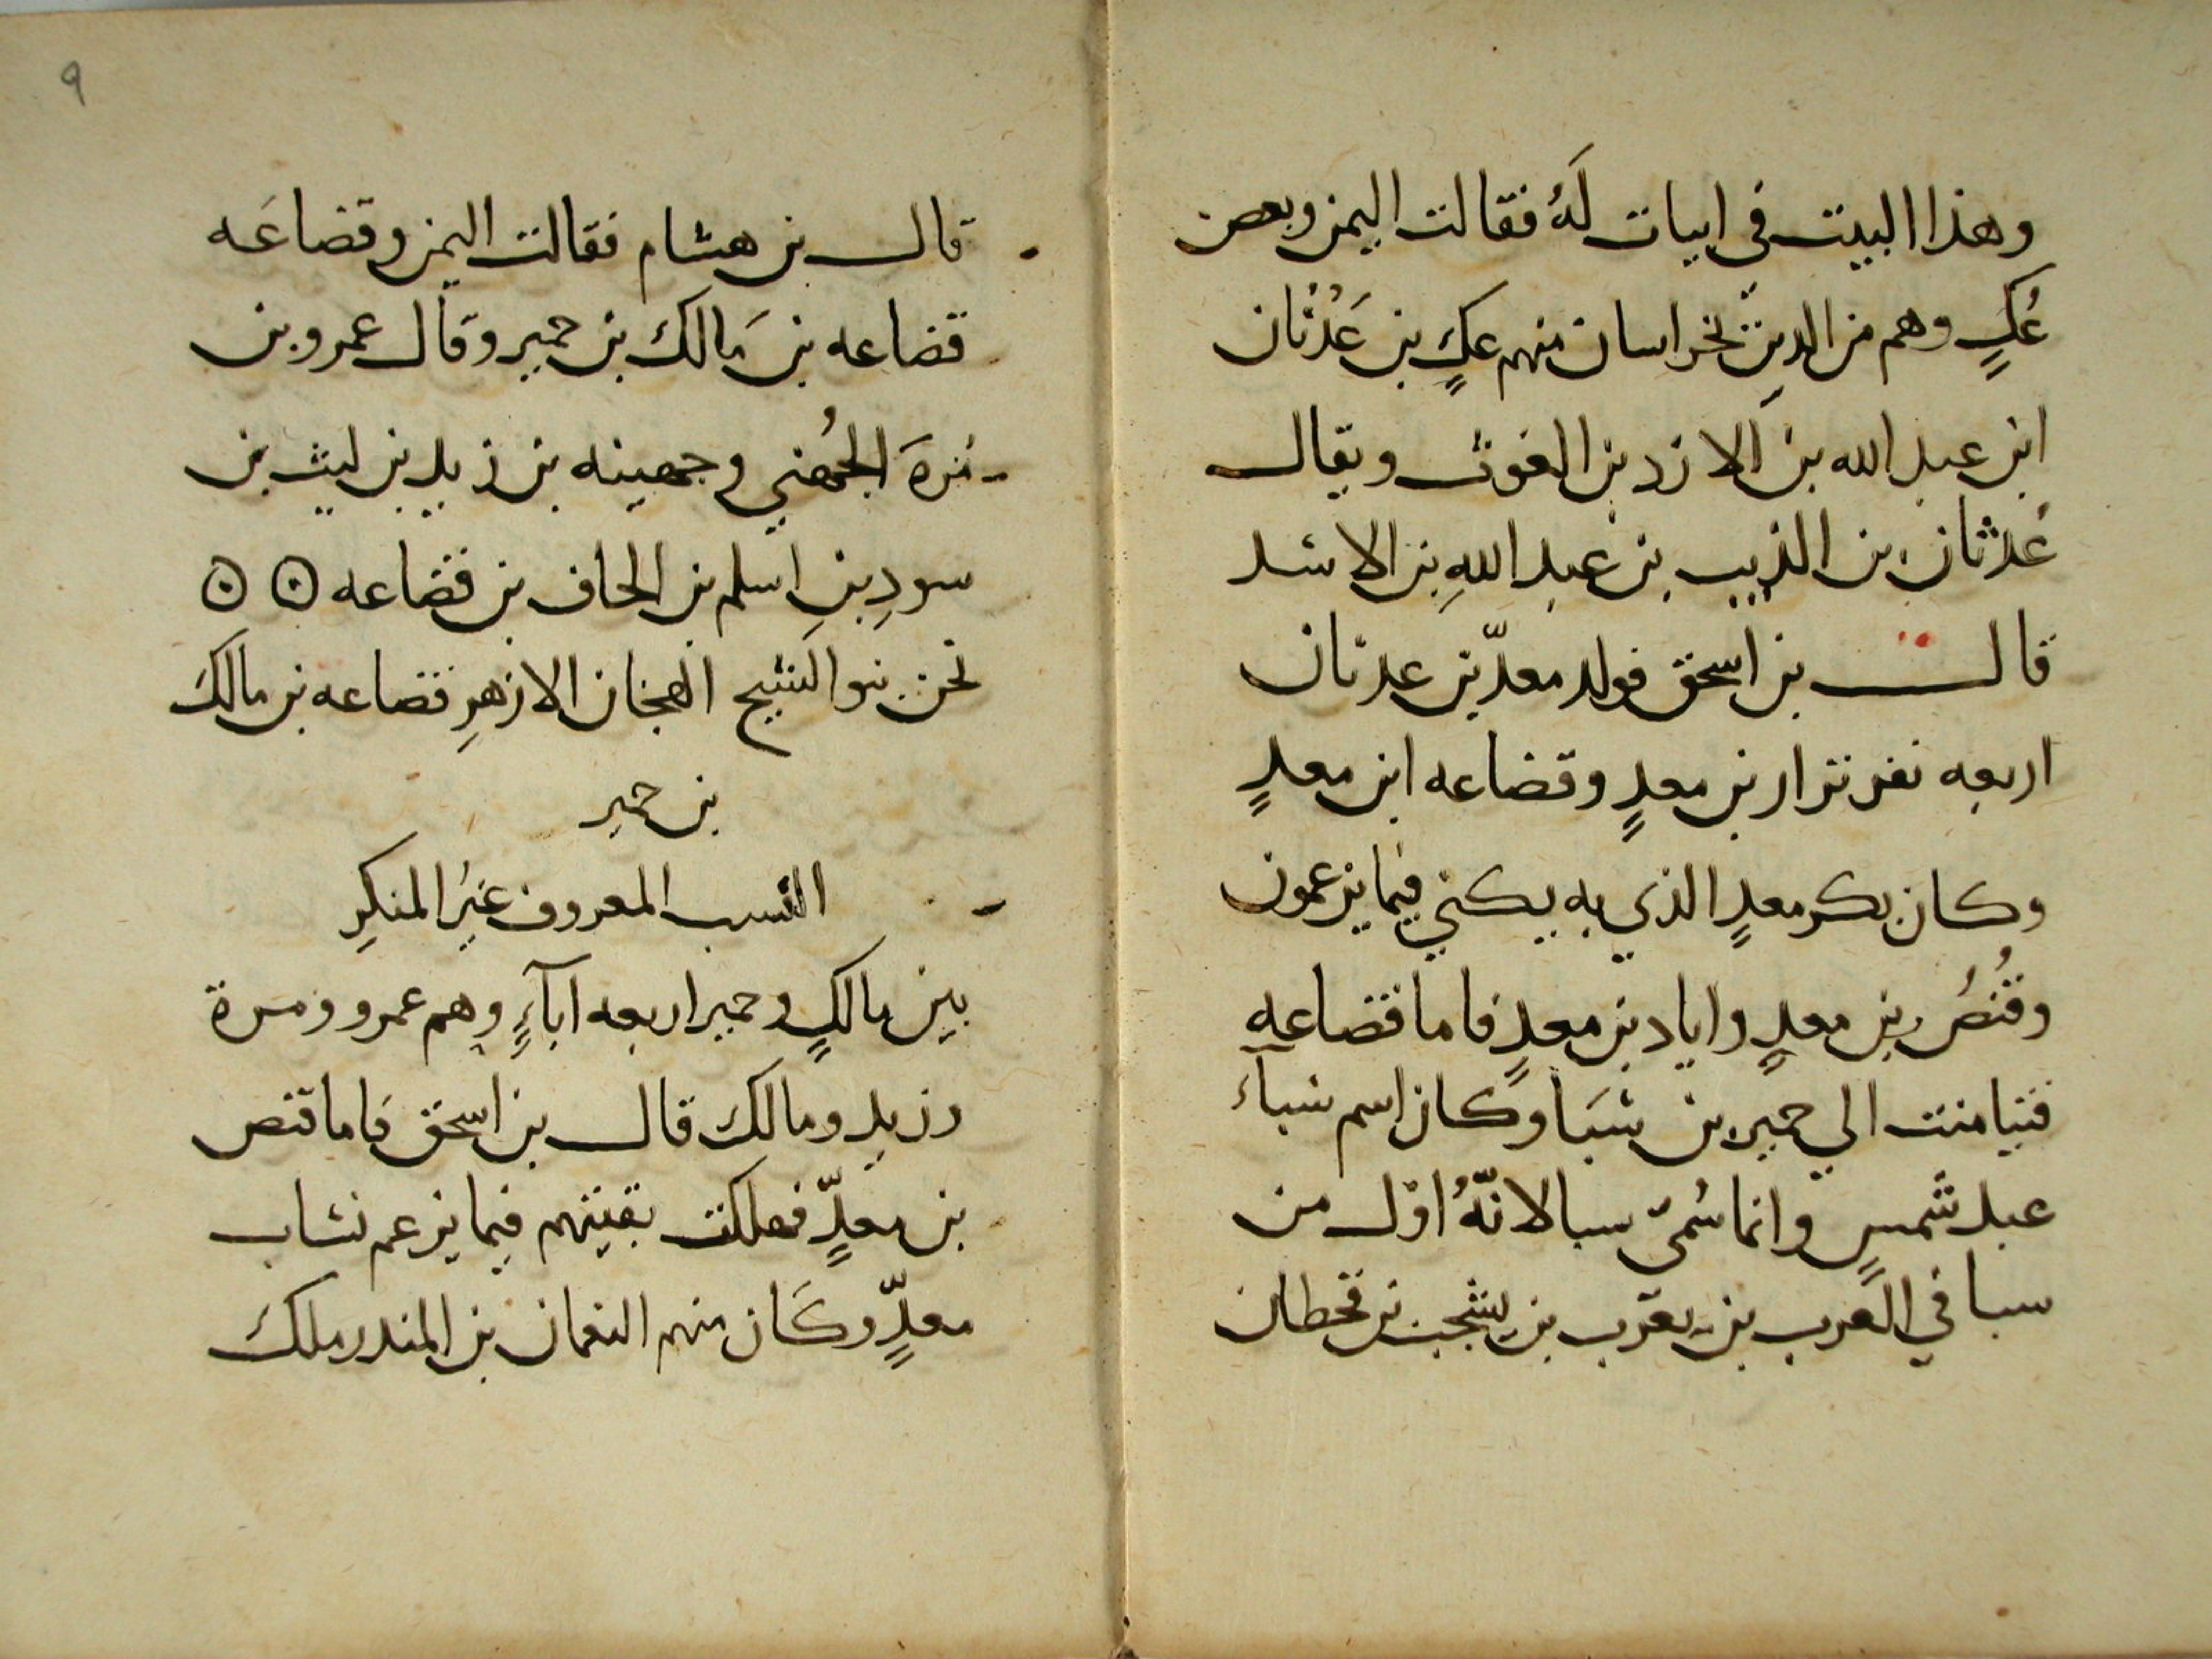 وهذا البيت في ابيات لَهُ فقالت اليمن وبعض
عُكٍ وهم من الدين بخراسان منهم عكٍ بن عَدْثان
ابن عبد الله بن الازد بن الغوث ويقال
عُدثان بن الذيب بن عبد اللهِ بن الاسد
قال بن اسحق فولد معدّ بن عدنان
اربعه نفر نزار بن معدٍ وقضاعه ابن معدٍ
وكان بكر معدٍ الذي به يكني فيما يزعمون
وقُنُصُ بن معدٍ واياد بن معدٍ فاما قضاعه
فتيامنت الي حمير بن سَبَا وكان اسم سبآء
عبد شمسٍ وانما سُمىّ سبا لانّهُ اوّل من
سبا في العرب بن يعرب بن يشجب بن قحطان
٩
قال بن هشام فقالت اليمن وقضاعَه
قضاعه بن مَالك بن حمير وقال عمرو بن
مُرةَ الجُهني وجهينه بن زيد بن ليث بن
سودِ بنِ اسلم بن الحاف بن قضاعه
نحن بنو الشيخ الهجان الازهرِ قضاعه بن مالك
بن حمير
النسب المعروف غيرُ المنكرِ
بين مالكٍ وحمير اربعه ابآءٍ وهم عمرو ومرة
وزيد ومالك قال بن اسحق فاما قنص
بن معدٍّ فهلكت بقيتهم فيما يزعم نساب
معدٍّ وكَان منهم النعمان بن المندر ملك